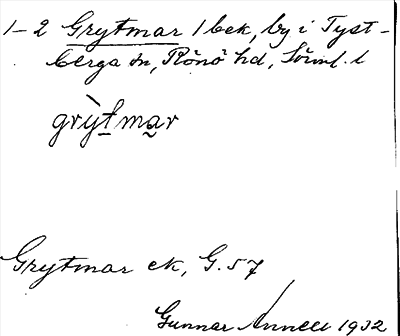 1-2 Grytmar 1 bek, by i Tyst-
berga sn, Rönö hd, Sörml. l
grỳt mar
Grytmar ek, G. 57
Gunnar Annell 1932